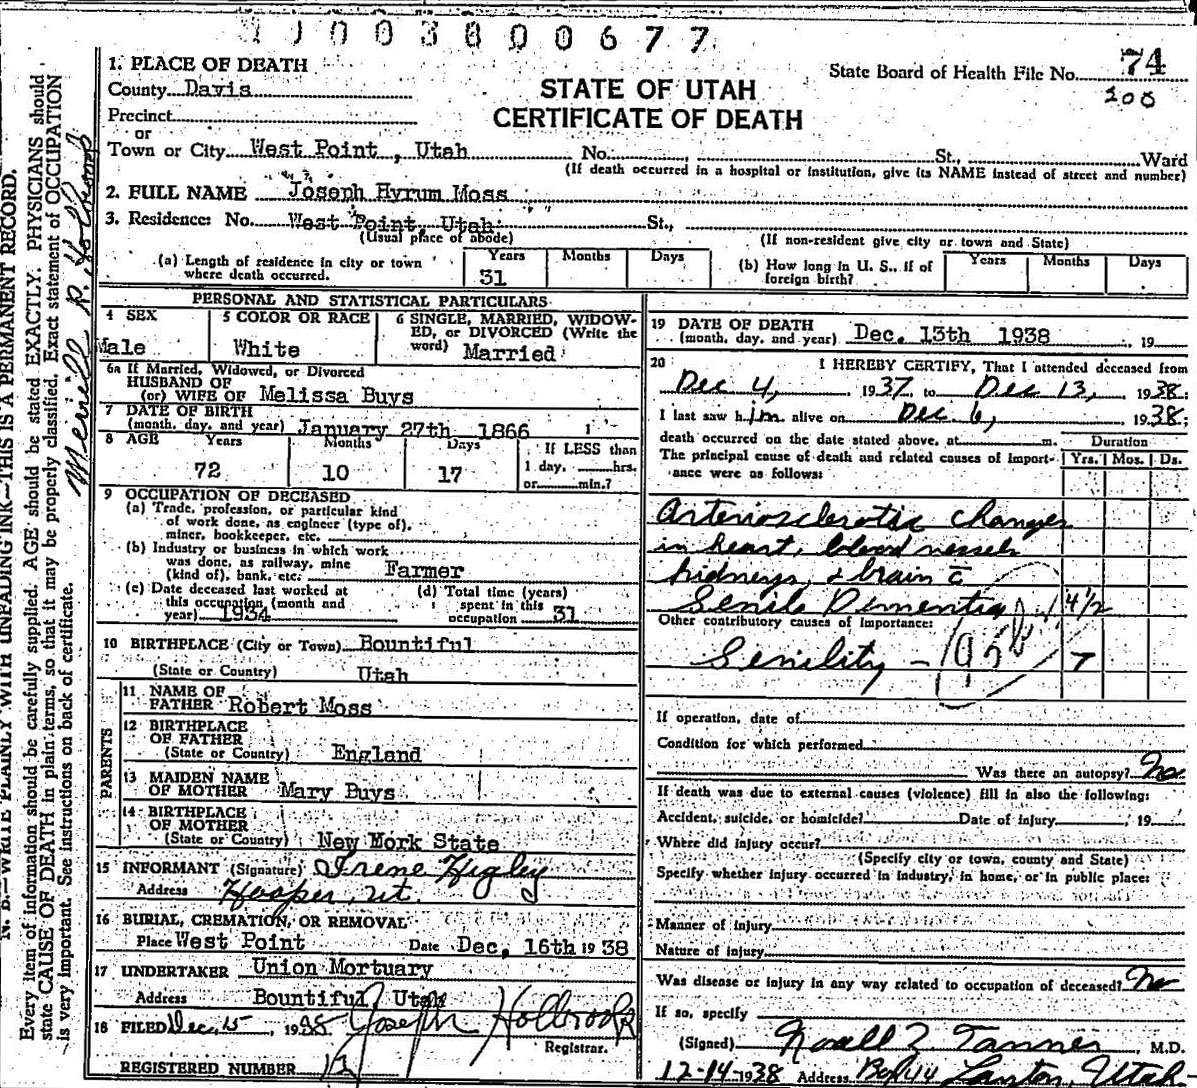 1 J 0 0 3 0 0 0 6 7 7
1. PLACE OF DEATH
County Davis
Precinct
or
Town or City West Point, Utah No. St., Ward
(If death occurred in a hospital or institution, give its NAME instead of street and number)
STATE OF UTAH
CERTIFICATE OF DEATH
State Board of Health File No. 74
200
2. FULL NAME Joseph Hyrum Moss
3. Residence: No. West Point, Utah St.,
(Usual place of abode) (If non-resident give city or town and State)
(a) Length of residence in city or town where death occurred. Years 31 Months Days
(b) How long in U. S., if of foreign birth? Years Months Days
PERSONAL AND STATISTICAL PARTICULARS
4 SEX
Male
5 COLOR OR RACE
White
6 SINGLE, MARRIED, WIDOW-
ED, or DIVORCED (Write the
word) Married
6a If Married, Widowed, or Divorced
HUSBAND OF
(or) WIFE OF Melissa Buys
7 DATE OF BIRTH
(month, day, and year) January 27th 1866
8 AGE Years Months Days If LESS than
72 10 17 1 day, hrs.
or min.?
9 OCCUPATION OF DECEASED
(a) Trade, profession, or particular kind
of work done, as engineer (type of),
miner, bookkeeper, etc.
(b) Industry or business in which work
was done, as railway, mine
(kind of), bank, etc. Farmer
(c) Date deceased last worked at
this occupation (month and
year) 1934
(d) Total time (years)
spent in this
occupation 31
10 BIRTHPLACE (City or Town) Bountiful
(State or Country) Utah
PARENTS
11 NAME OF
FATHER Robert Moss
12 BIRTHPLACE
OF FATHER
(State or Country) England
13 MAIDEN NAME
OF MOTHER Mary Buys
14 BIRTHPLACE
OF MOTHER
(State or Country) New Mork State
15 INFORMANT (Signature) Irene Higley
Address Hooper, Ut.
16 BURIAL, CREMATION, OR REMOVAL
Place West Point Date Dec, 16th 1938
17 UNDERTAKER Union Mortuary
Address Bountiful, Utah
18 FILED Dec, 15, 1938 Joseph Holbrook
Registrar.
REGISTERED NUMBER
19 DATE OF DEATH
(month, day, and year) Dec. 13th 1938, 19
20 I HEREBY CERTIFY, That I attended deceased from
Dec 4, 1937, to Dec 13, 1938;
I last saw him alive on Dec 6, 1938;
death occurred on the date stated above, at m. Duration
The principal cause of death and related causes of import- Yrs. Mos. Ds.
ance were as follows:
Arteriosclerotic changes
in heart, blood vessels
kidneys, & brain c̄
Senile Dementia 4 1/2
Other contributory causes of importance:
Senility - 7
If operation, date of
Condition for which performed
Was there an autopsy? No
If death was due to external causes (violence) fill in also the following:
Accident, suicide, or homicide? Date of injury , 19
Where did injury occur?
(Specify city or town, county and State)
Specify whether injury occurred in industry, in home, or in public place:
Manner of injury
Nature of injury
Was disease or injury in any way related to occupation of deceased? No
If so, specify
(Signed) Noall Z Tanner, M.D.
12-14-1938 Address Layton, Utah
N. B.—WRITE PLAINLY WITH UNFADING INK—THIS IS A PERMANENT RECORD.
Every item of information should be carefully supplied. AGE should be stated EXACTLY. PHYSICIANS should
state CAUSE OF DEATH in plain terms, so that it may be properly classified. Exact statement of OCCUPATION
is very important. See instructions on back of certificate.
Merrill R. Holbrook